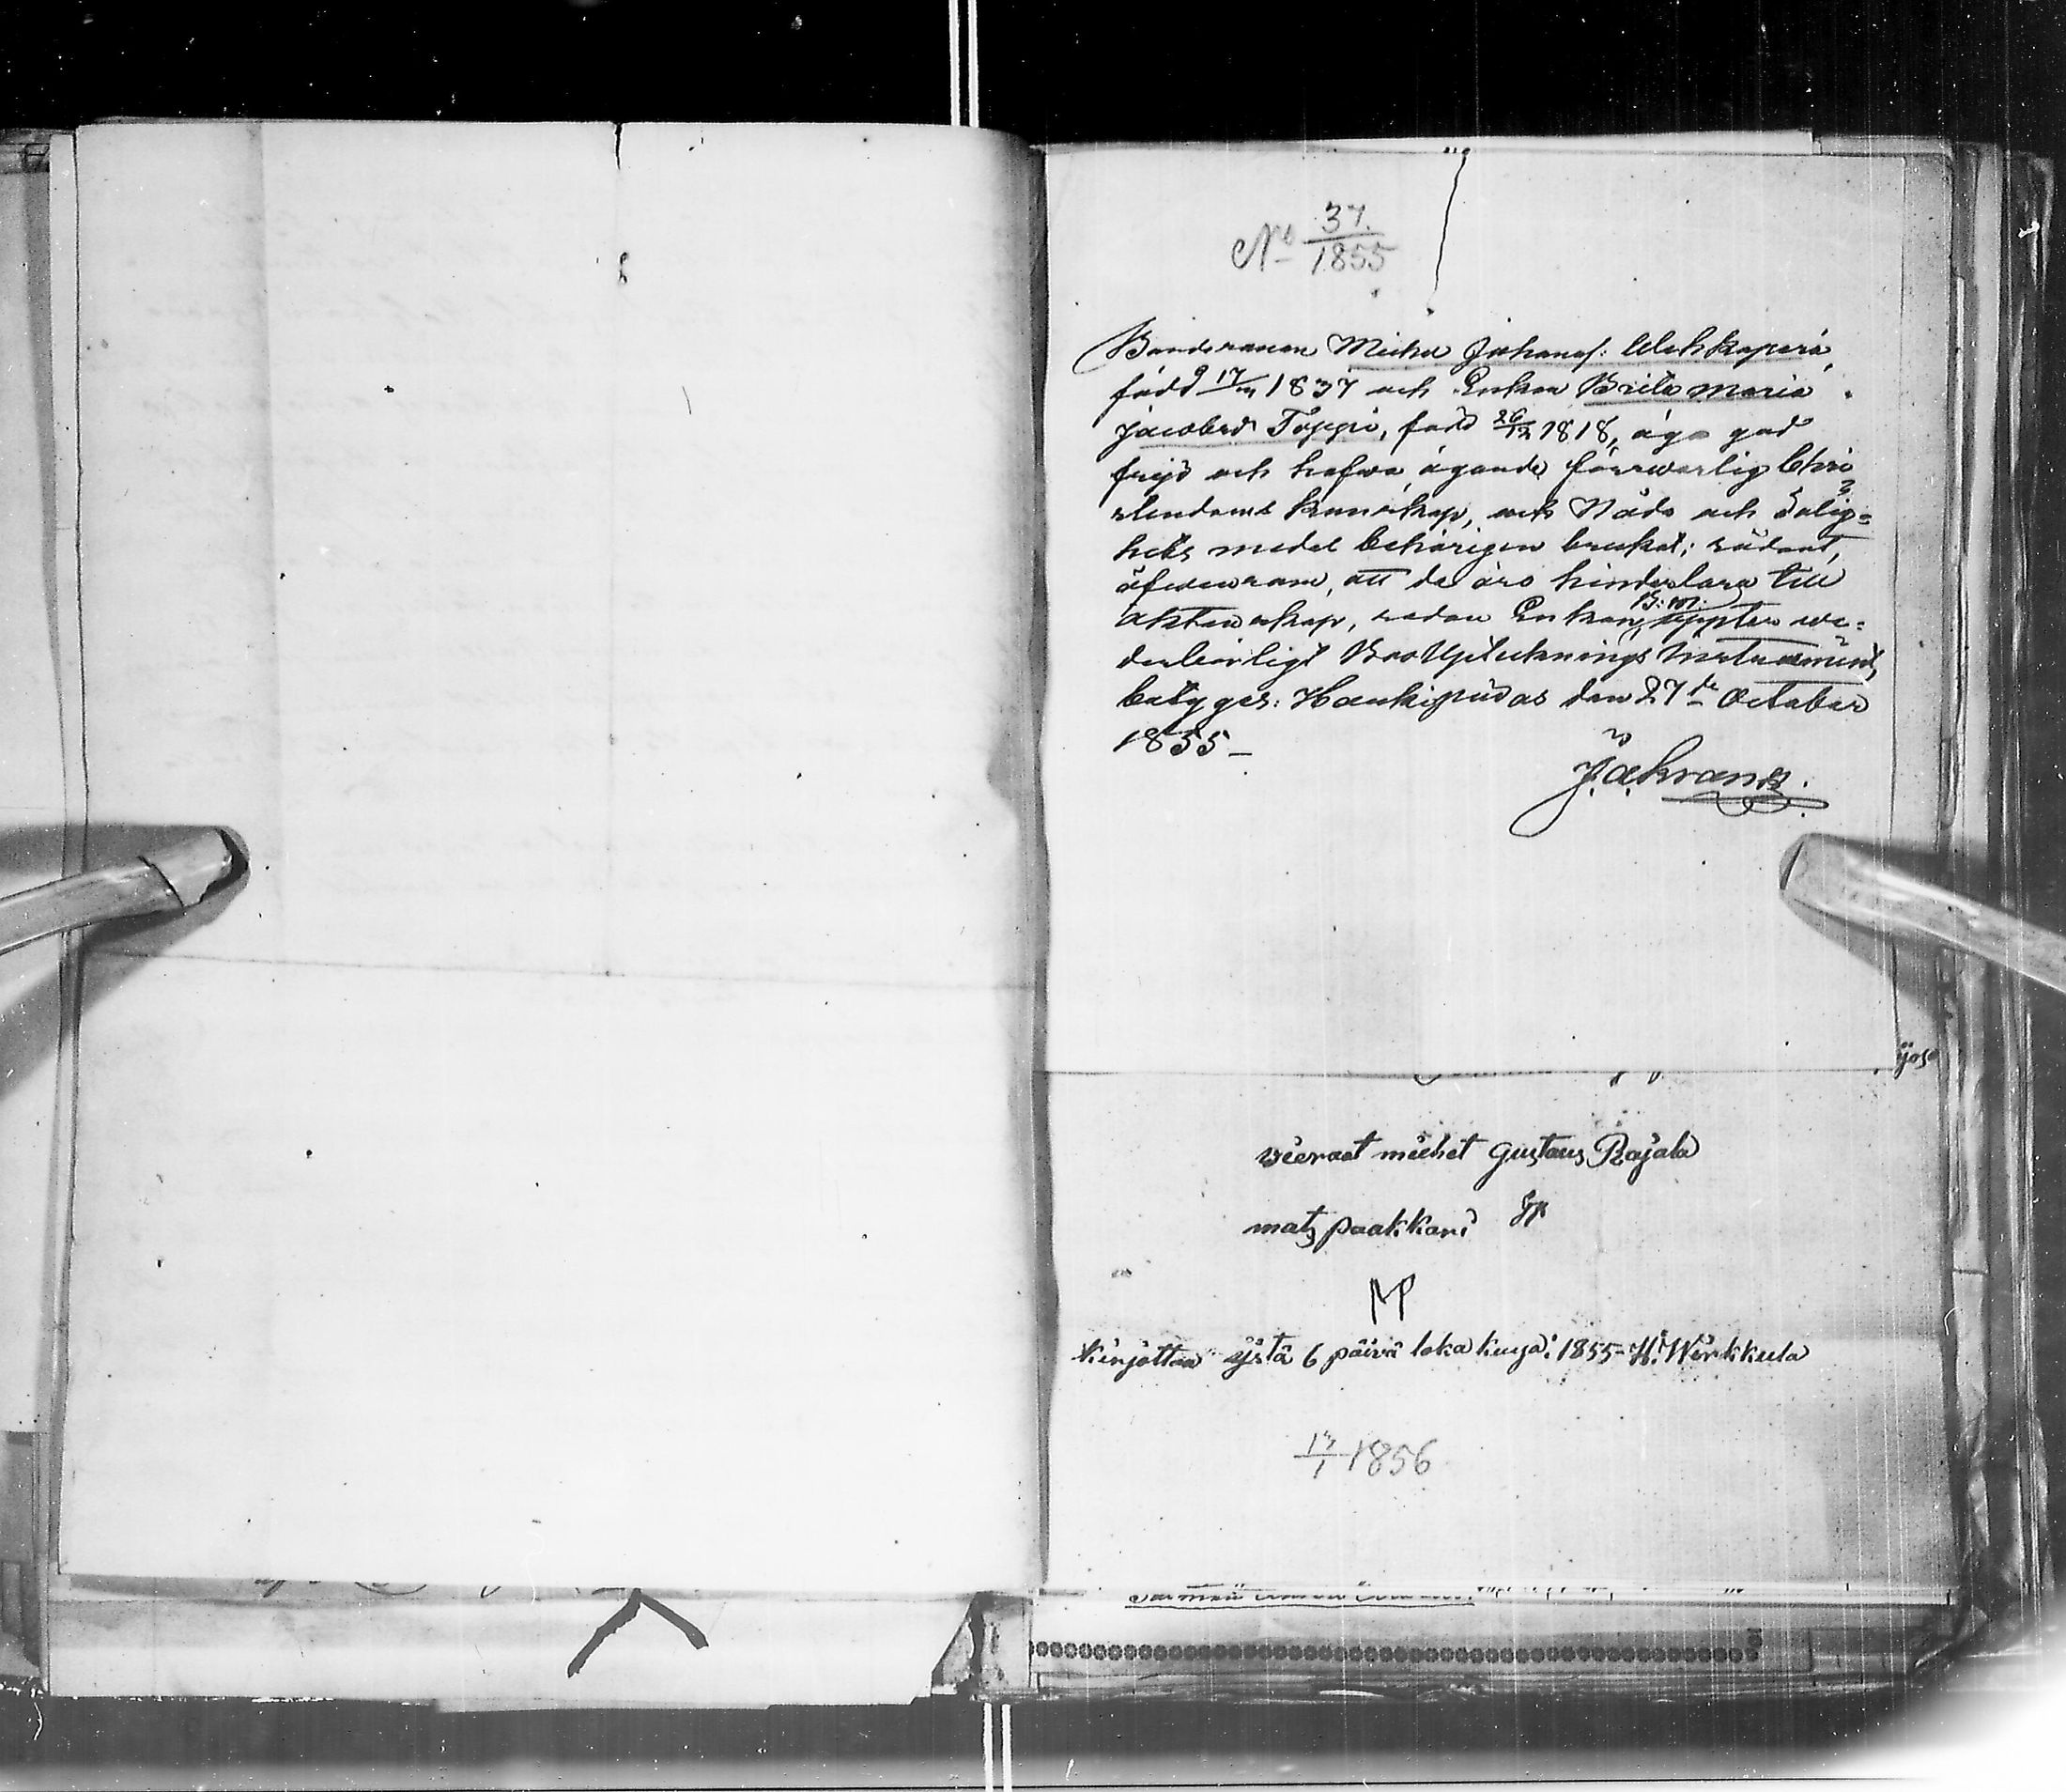 No 37.
1855
Bondesonen Michel Johansf: Uleskaperä,
född 17/11 1837 och Enkan Brita Maria
Jacobsd. Toppi, född 26/12 1818, äga god
frejd och hafwa ägande förswarlig Chri
stendoms kunskap, ock Nåds och Salig=
hets medel behörigen brukat; sådant,
äfwensom, att de äro hinderlösa till
äktenskap, sedan Enkan B: M: uppter we=
derbörligt BouUpteknings Instrument,
betygges: Haukipudas den 27de October
1855_
ijos
wieraat miehet Gustaus Rajala
mats paakkari
MP
kirjottaa ystä 6 päivä loka kuuja: 1855- H. Wirkkula
13/1 1856